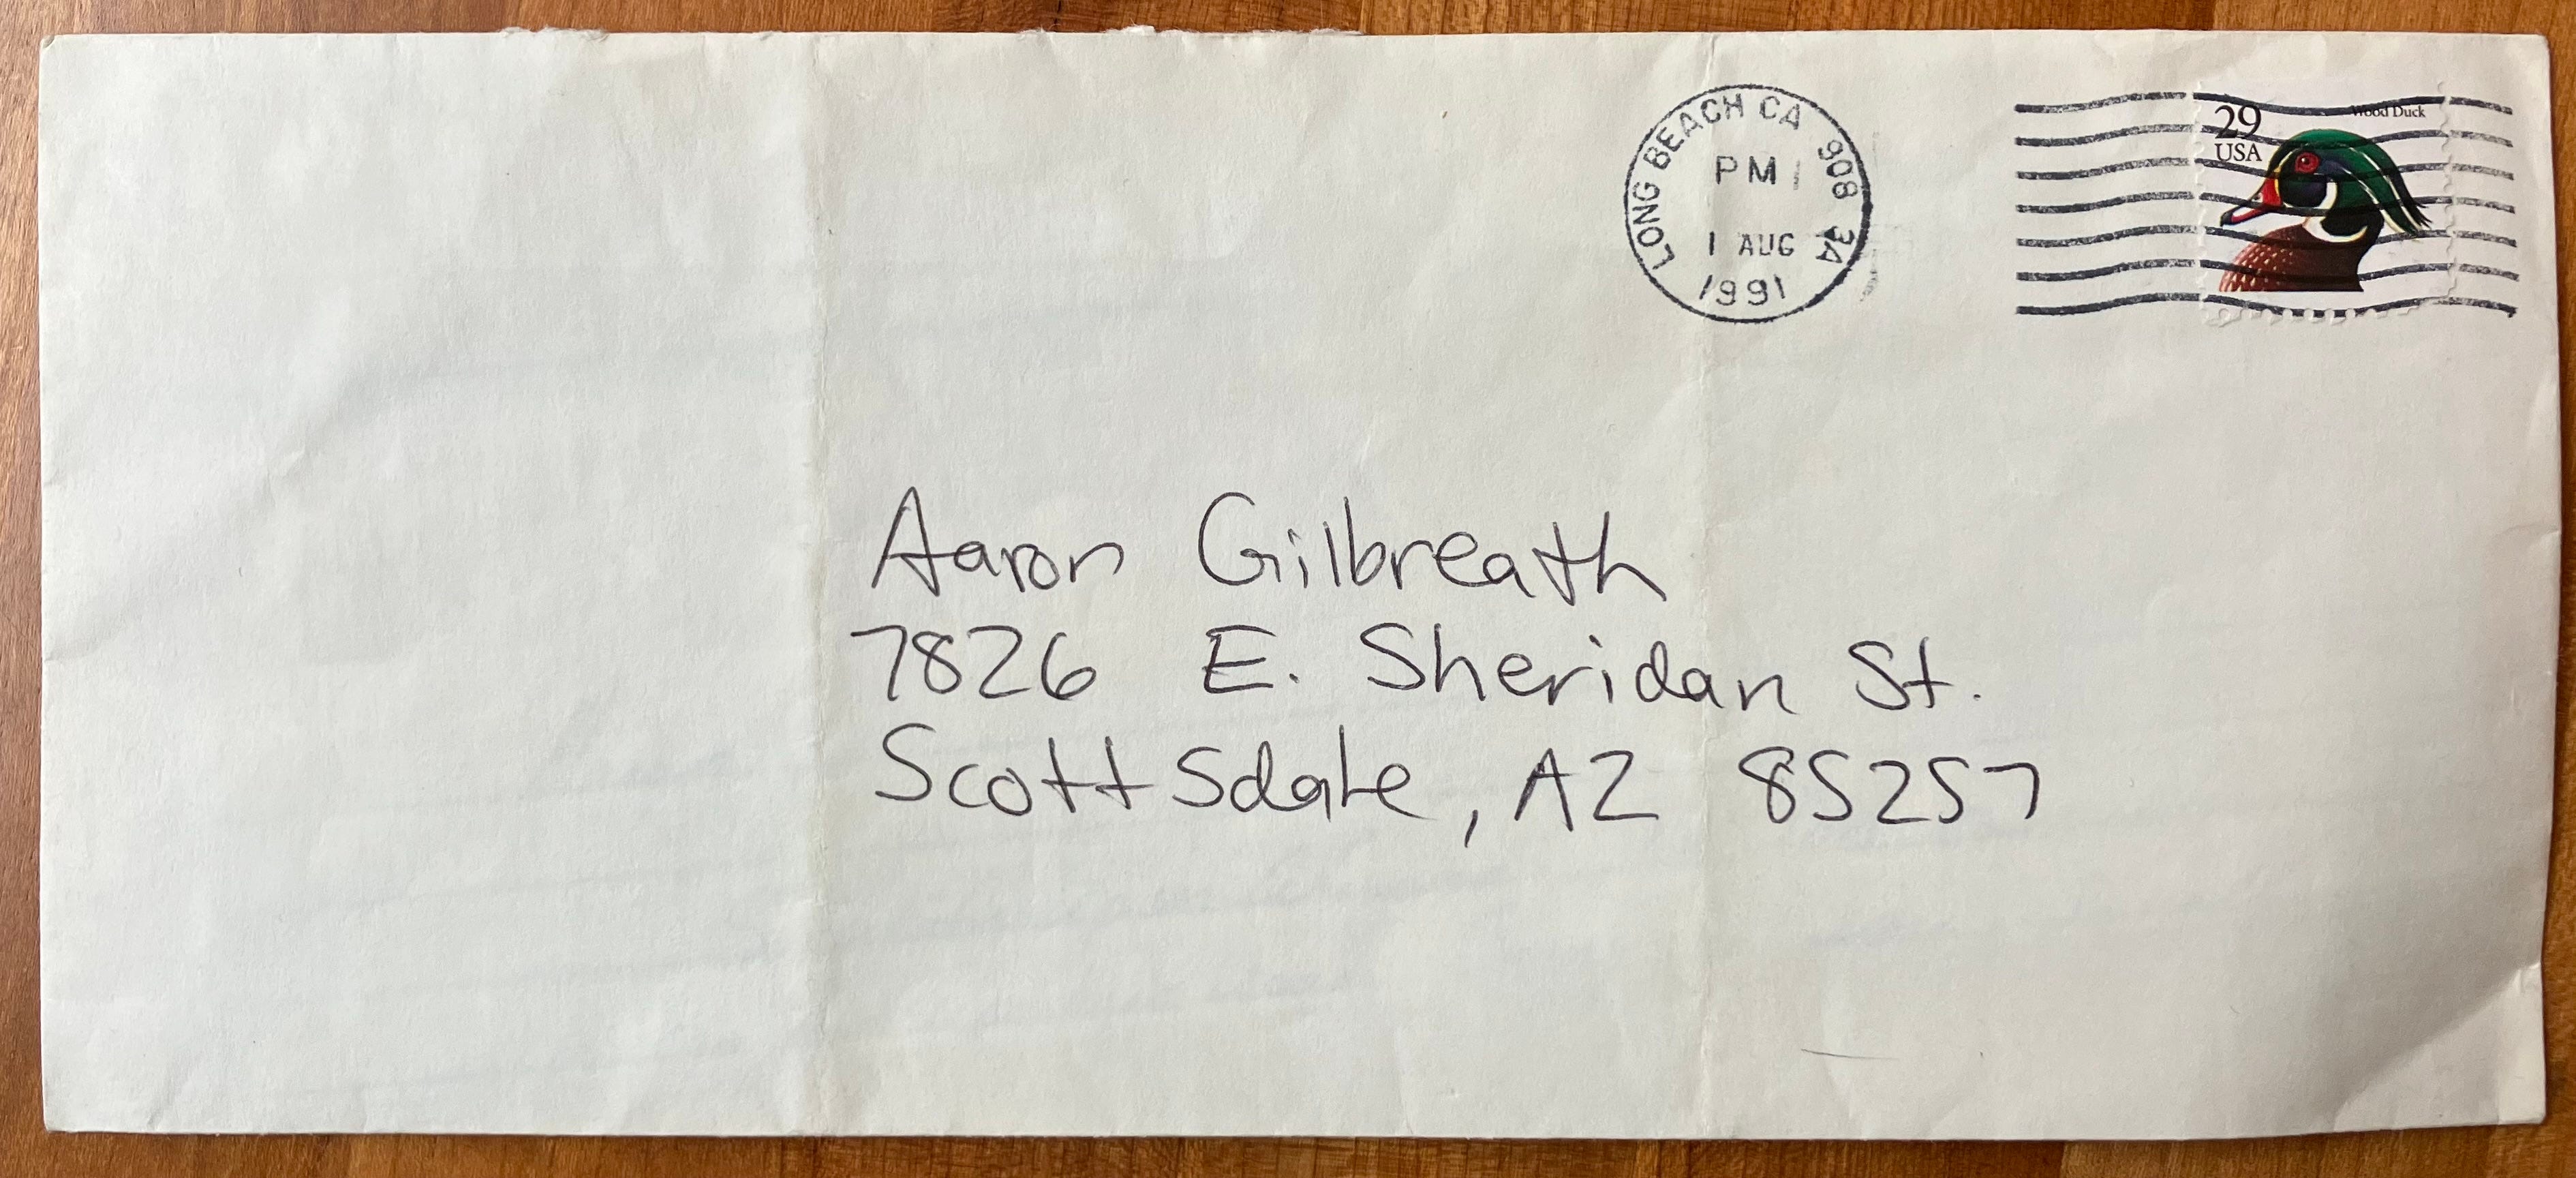 LONG BEACH CA 908 3A
PM
1 AUG
1991
29
USA
Wood Duck
Aaron Gilbreath
7826 E. Sheridan St.
Scottsdale, AZ 85257